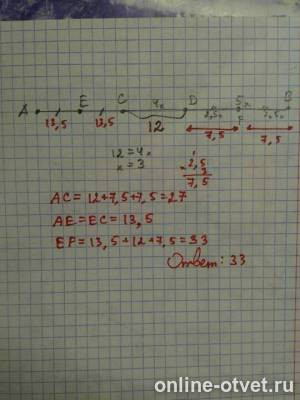 4x 5x
A E C D 2,5x F 2,5x B
13,5 13,5 12 7,5 7,5
12 = 4x
x = 3
2,5
3
7,5
AC = 12+7,5+7,5=27
AE=EC= 13,5
EF= 13,5+12+7,5=33
Ответ: 33
online-otvet.ru